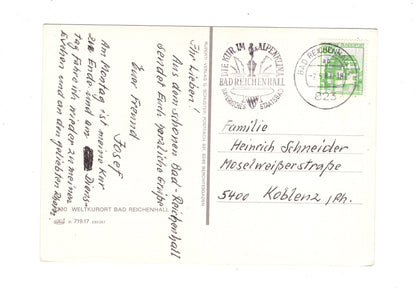 Ihr Lieben!
Aus dem schönen Bad-Reichenhall
sendet Euch herzliche Grüße
Euer Freund
Josef
Am Montag ist meine Kur
zu Ende und am Diens-
tag fahre ich wieder zu meinen
und an den geliebten Rhein.
WELTKURORT BAD REICHENHALL
DIE KUR IM ALPENKLIMA
BAD REICHENHALL
BAYERISCHES STAATSBAD
BAD REICHENHALL
Familie
Heinrich Schneider
Moselweißerstraße
5400 Koblenz /Rh.